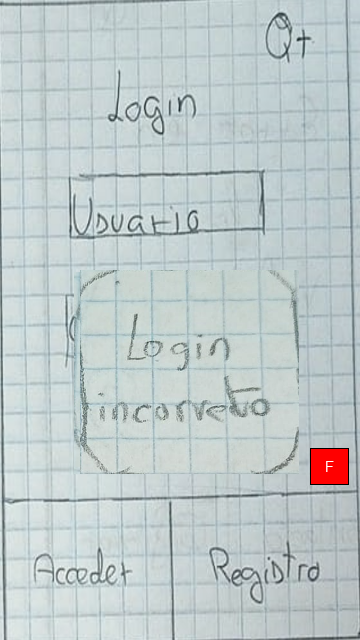 Q+
Login
Usuario
Login
incorreto
F
Acceder
Registro